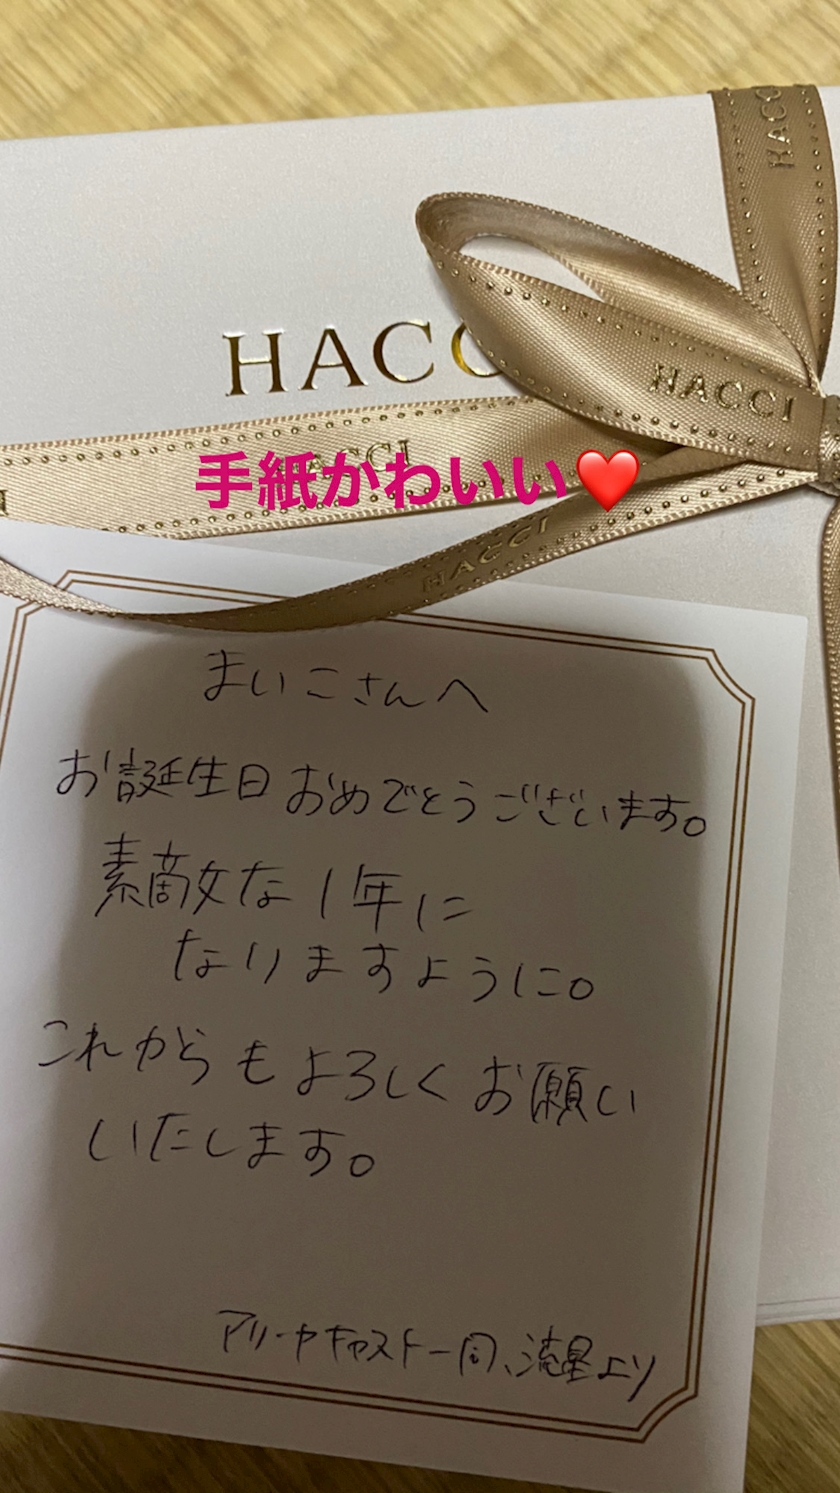 HACCI
HACC
HACCI
HACCI
手紙かわいい❤️
HACCI
まいこさんへ
お誕生日おめでとうございます。
素敵な1年に
なりますように。
これからもよろしくお願い
いたします。
アリーナキャスト一同、流星より